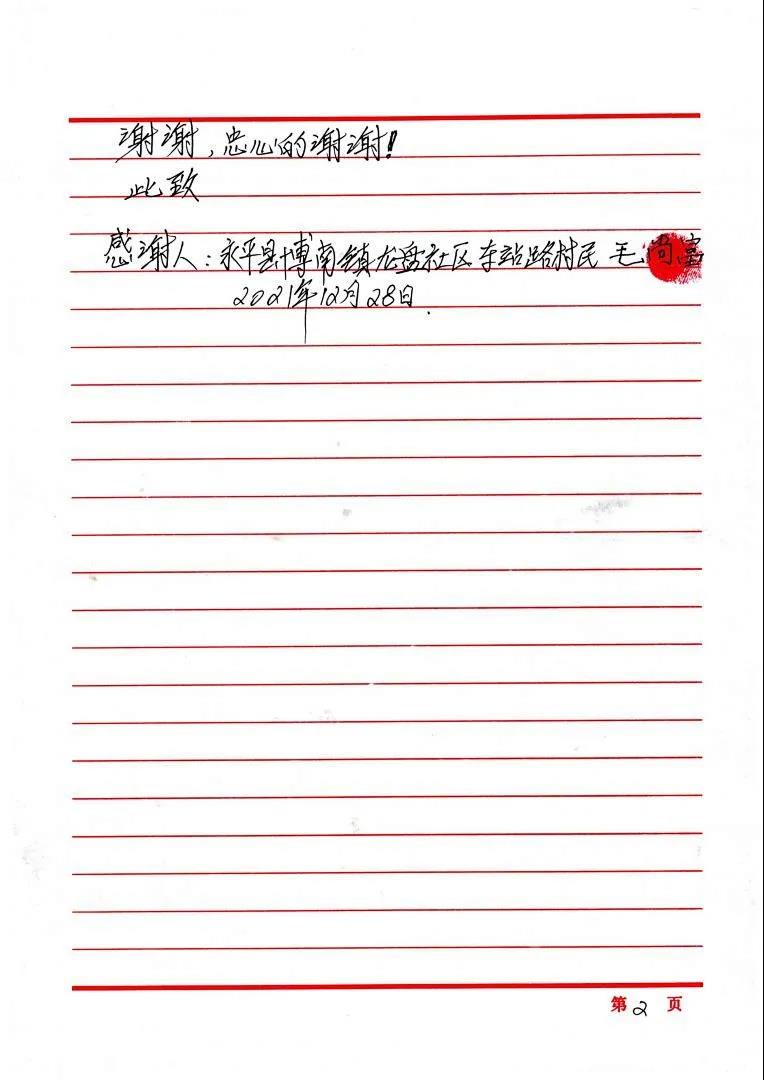 谢谢,忠心的谢谢!
此致
感谢人:永平县博南镇龙盘社区车站路村民 毛尚富
2021年12月28日.
第2页